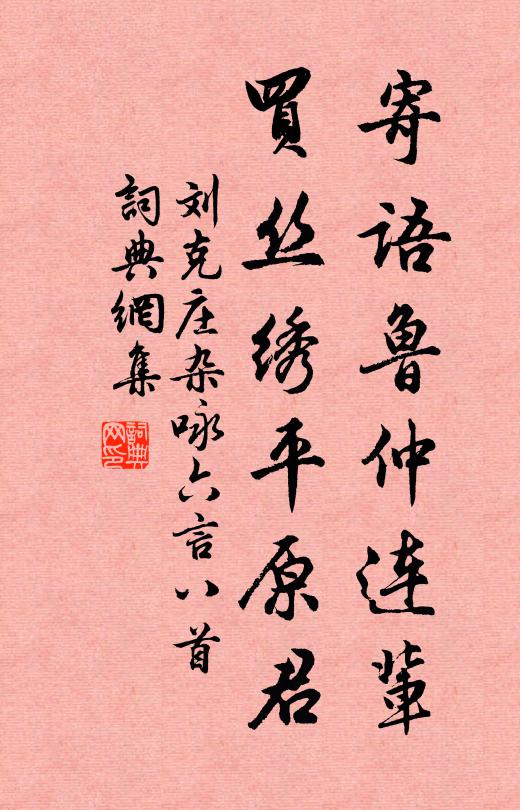 寄语鲁仲连辈
買丝绣平原君
刘克庄杂咏六言八首
詞典網集
詞典网印